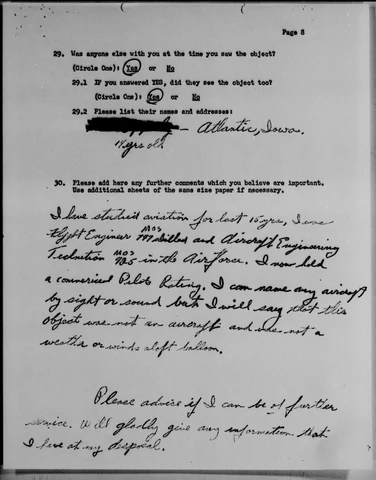 Page 8
29. Was anyone else with you at the time you saw the object?
(Circle One): Yes or No
29.1 IF you answered YES, did they see the object too?
(Circle One): Yes or No
29.2 Please list their names and addresses:
- Atlantic, Iowa.
yrs old
30. Please add here any further comments which you believe are important.
Use additional sheets of the same size paper if necessary.
I have studied aviation for last 15 yrs, I was
Flight Engineer MOS and Aircraft Engineering
MOS in the Air Force. I now hold
a commerical Pilots Rating. I can name any aircraft
by sight or sound but I will say that this
object was not an aircraft and was not a
weather or winds aloft balloon.
Please advise if I can be of further
service. Will gladly give any information that
I have at my disposal.